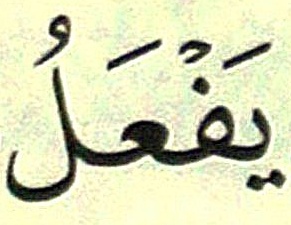 يَفْعَلُ